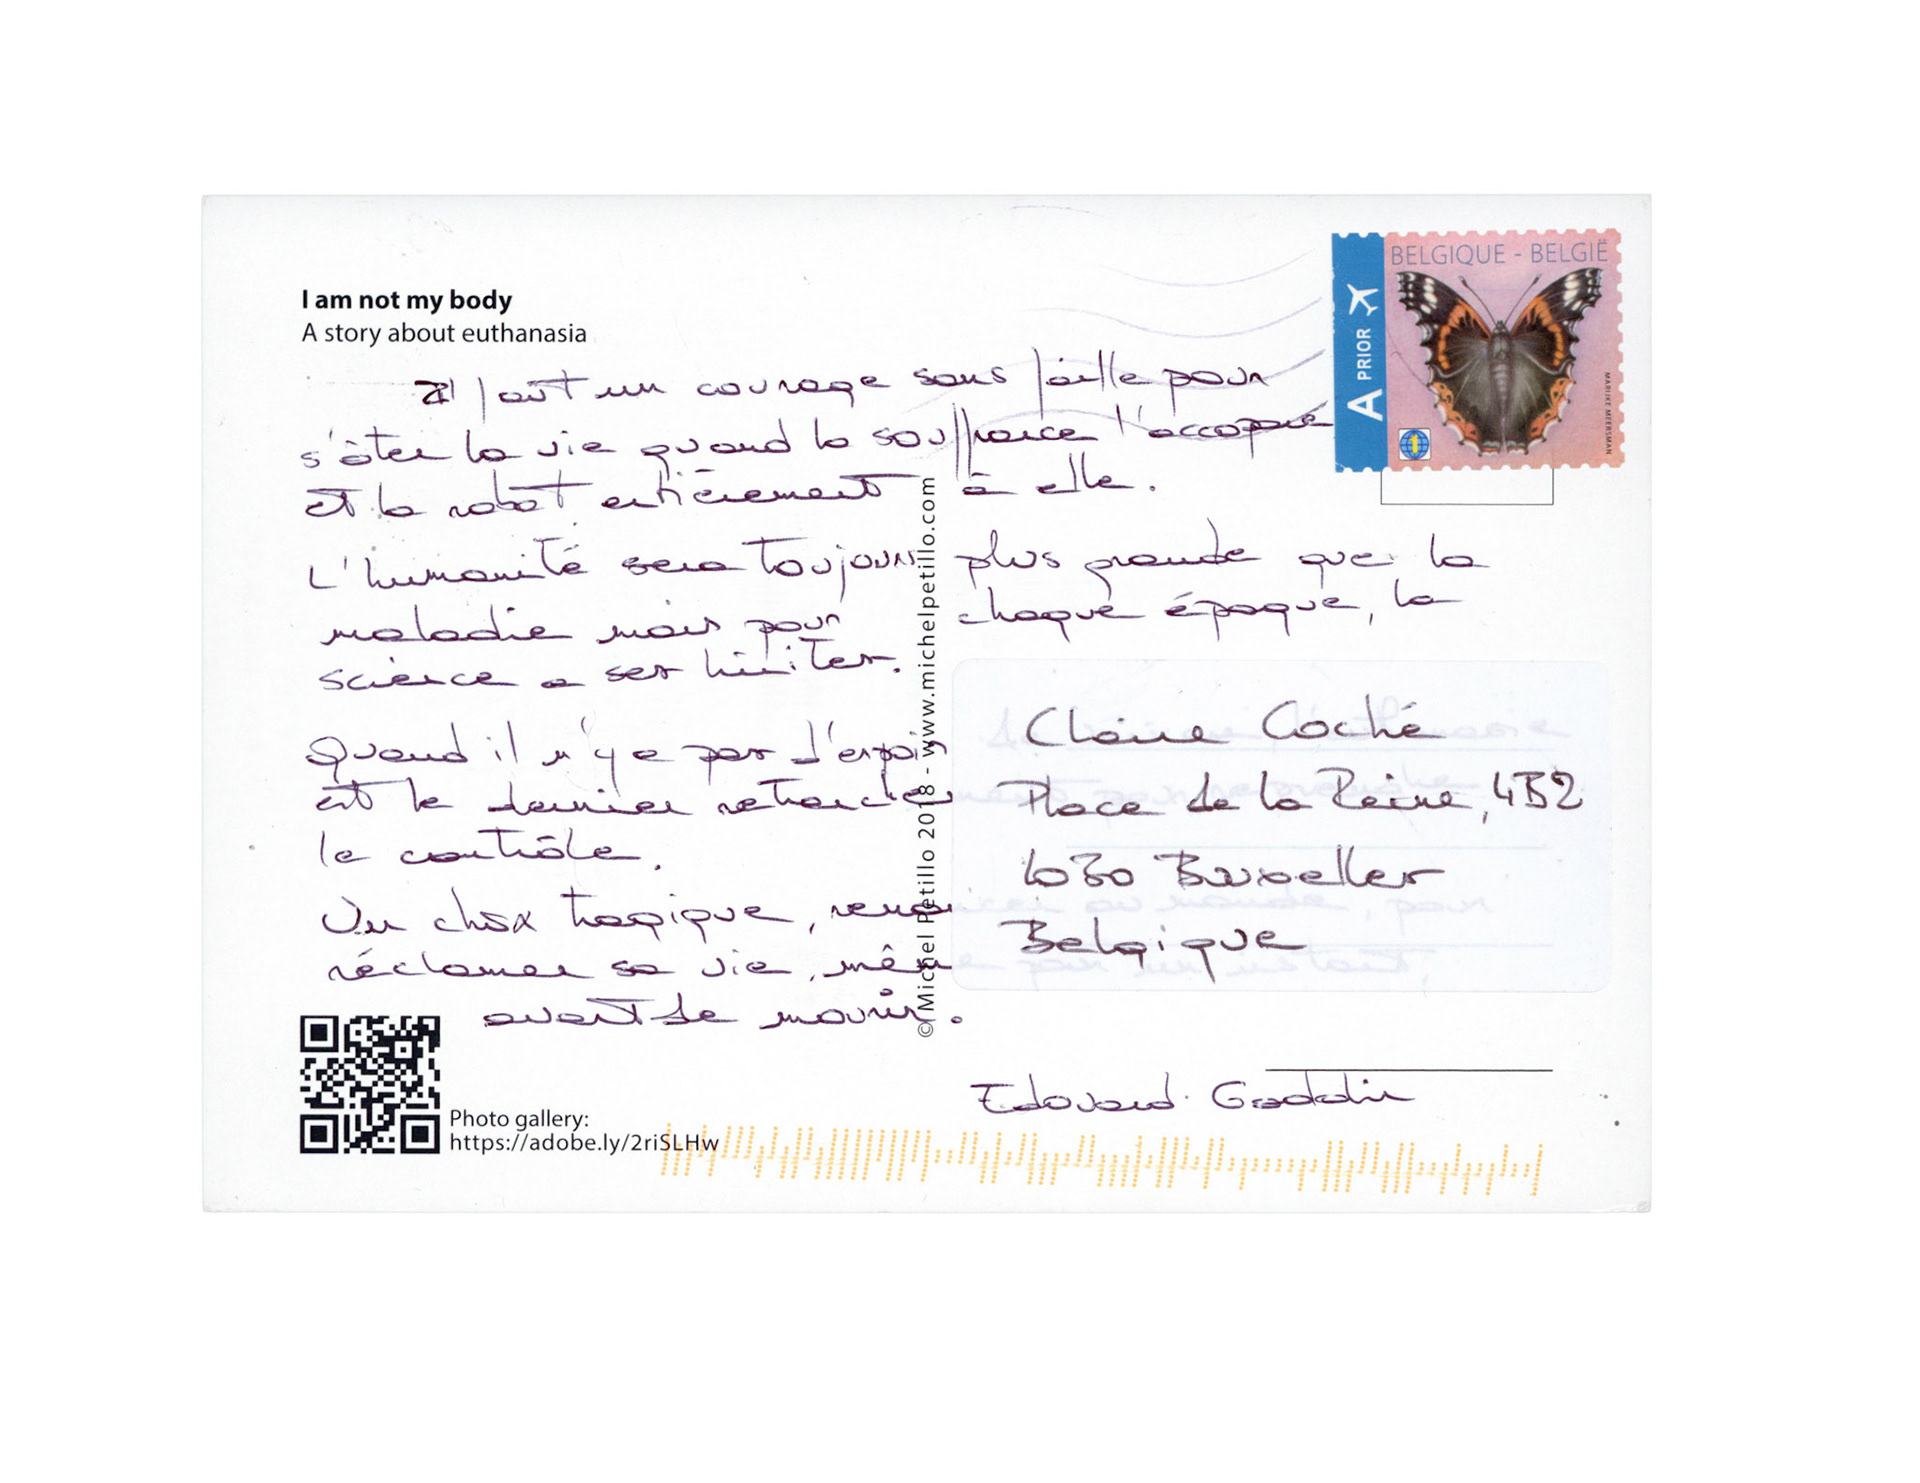 I am not my body
A story about euthanasia
BELGIQUE - BELGIË
A PRIOR
1
MARIJKE MEERSMAN
Il faut un courage sans faille pour
s'ôter la vie quand la souffrance l'accapare
et la rabat entièrement à elle.
L'humanité sera toujours plus grande que la
maladie mais pour chaque époque, la
science a ses limites.
Quand il n'y a pas d'espoir l'euthanasie
est le dernier retranchement pour reprendre
le contrôle.
Un choix tragique, renoncer au monde, pour
réclamer sa vie, même pour un instant,
avant de mourir.
© Michel Petillo 2018 - www.michelpetillo.com
Claire Coché
Place de la Reine, 4B2
1030 Bruxelles
Belgique
Edouard Gaddin
Photo gallery:
https://adobe.ly/2riSLHw